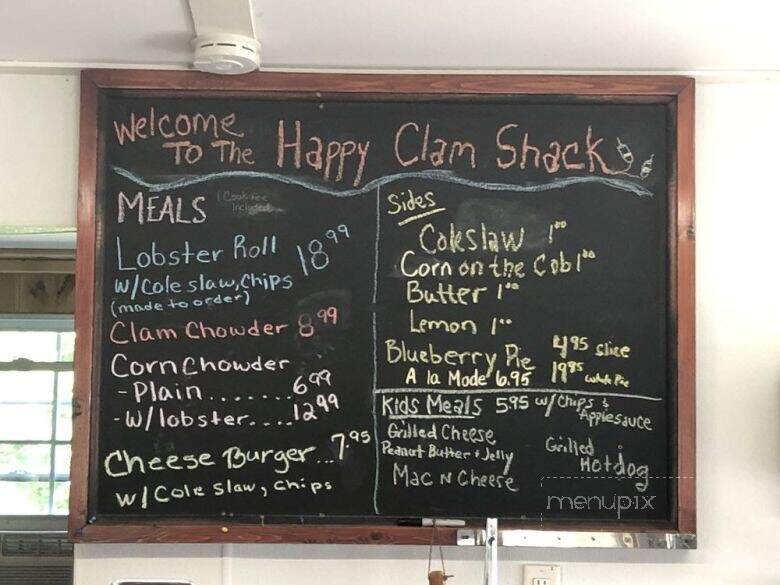 Welcome
To The Happy Clam Shack
MEALS
Included
Lobster Roll 18.99
w/Cole slaw, Chips
(made to order)
Clam Chowder 8.99
Corn Chowder
- Plain........6.99
- w/lobster....12.99
Cheese Burger...7.95
w/Cole slaw, chips
Sides
Coleslaw 1.00
Corn on the Cob 1.00
Butter 1.00
Lemon 1.00
Blueberry Pie 4.95 slice
A la Mode 6.95 19.95 whole Pie
Kids Meals 5.95 w/ chips &
Applesauce
Grilled Cheese
Peanut Butter + Jelly
Mac N Cheese
Grilled
Hotdog
menupix